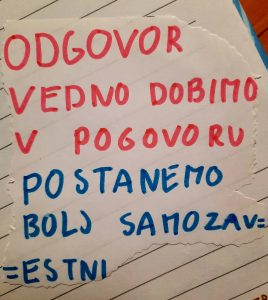 ODGOVOR
VEDNO DOBIMO
V POGOVORU
POSTANEMO
BOLJ SAMOZAV=
=ESTNI